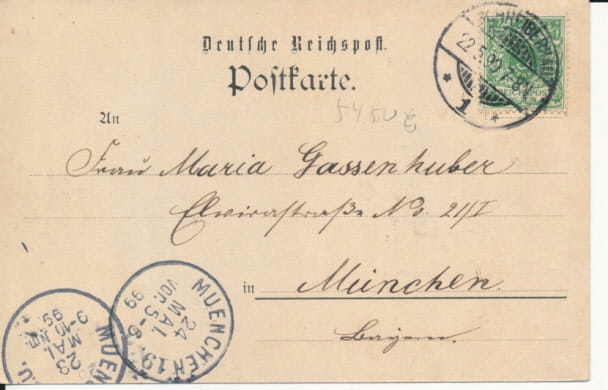 Deutsche Reichspost.
Postkarte.
SCHREIBERHAU
22.5.99.
* 1 *
An
Frau Maria Gassenhuber
Elvirastraße No. 21/I
in München.
Bayern.
MUENCHEN 19.
24
MAI.
VOR. 5-6
99
MUENC
23
MAI.
9-10 Nm.
99